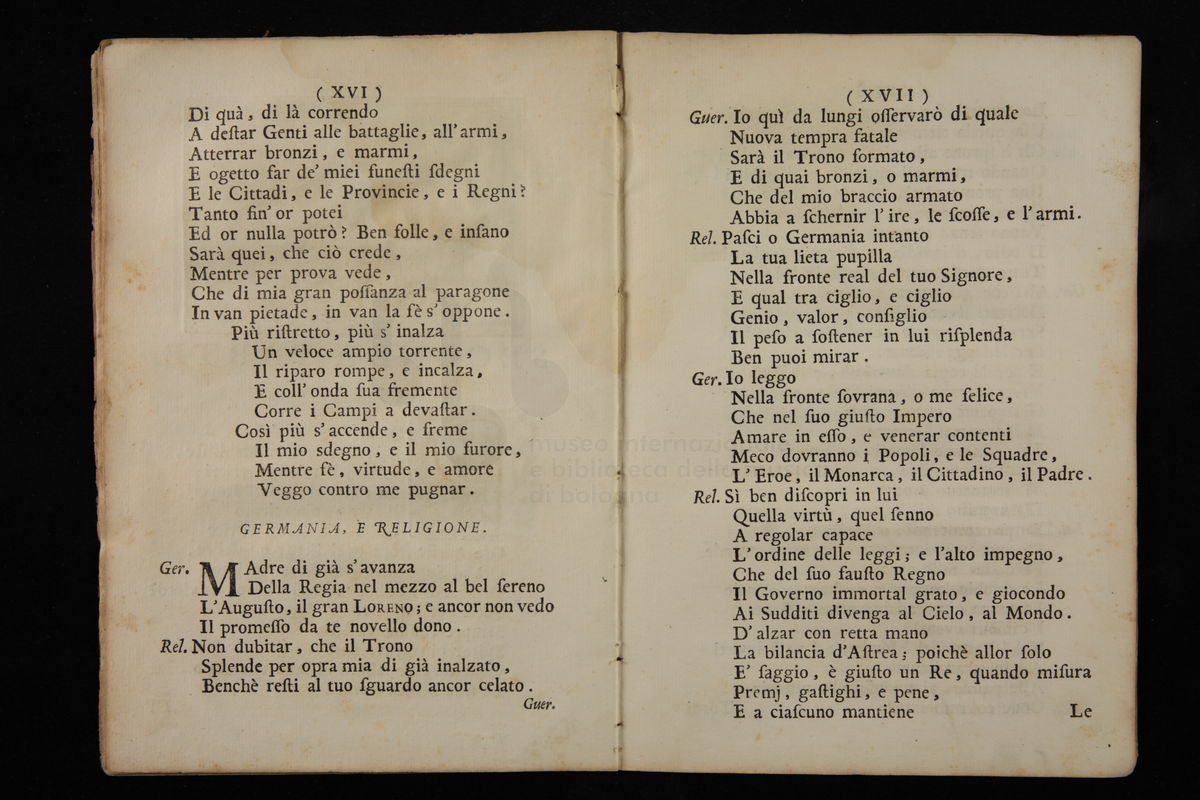 ( XVI )
Di quà, di là correndo
A deſtar Genti alle battaglie, all'armi,
Atterrar bronzi, e marmi,
E ogetto far de' miei funeſti ſdegni
E le Cittadi, e le Provincie, e i Regni?
Tanto fin' or potei
Ed or nulla potrò? Ben folle, e inſano
Sarà quei, che ciò crede,
Mentre per prova vede,
Che di mia gran poſſanza al paragone
In van pietade, in van la fè s' oppone.
Più riſtretto, più s' inalza
Un veloce ampio torrente,
Il riparo rompe, e incalza,
E coll' onda ſua fremente
Corre i Campi a devaſtar.
Così più s' accende, e freme
Il mio sdegno, e il mio furore,
Mentre fè, virtude, e amore
Veggo contro me pugnar.
GERMANIA, E RELIGIONE.
Ger. MAdre di già s'avanza
Della Regia nel mezzo al bel ſereno
L'Auguſto, il gran LORENO; e ancor non vedo
Il promeſſo da te novello dono.
Rel. Non dubitar, che il Trono
Splende per opra mia di già inalzato,
Benchè reſti al tuo ſguardo ancor celato.
Guer.
( XVII )
Guer. Io quì da lungi oſſervarò di quale
Nuova tempra fatale
Sarà il Trono formato,
E di quai bronzi, o marmi,
Che del mio braccio armato
Abbia a ſchernir l' ire, le ſcoſſe, e l'armi.
Rel. Paſci o Germania intanto
La tua lieta pupilla
Nella fronte real del tuo Signore,
E qual tra ciglio, e ciglio
Genio, valor, conſiglio
Il peſo a ſoſtener in lui riſplenda
Ben puoi mirar.
Ger. Io leggo
Nella fronte ſovrana, o me felice,
Che nel ſuo giuſto Impero
Amare in eſſo, e venerar contenti
Meco dovranno i Popoli, e le Squadre,
L' Eroe, il Monarca, il Cittadino, il Padre.
Rel. Sì ben diſcopri in lui
Quella virtù, quel ſenno
A regolar capace
L' ordine delle leggi; e l'alto impegno,
Che del ſuo fauſto Regno
Il Governo immortal grato, e giocondo
Ai Sudditi divenga al Cielo, al Mondo.
D' alzar con retta mano
La bilancia d'Aſtrea; poichè allor ſolo
E' ſaggio, è giuſto un Re, quando miſura
Premj, gaſtighi, e pene,
E a ciaſcuno mantiene
Le
museo internazionale
e biblioteca della musica
di bologna